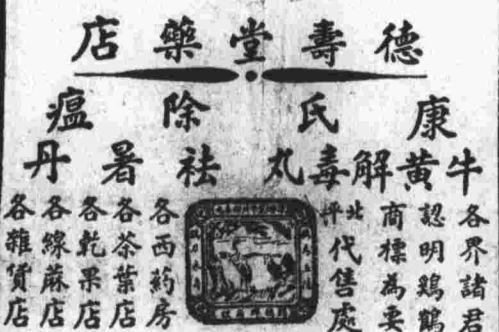 德壽堂藥店
康氏除瘟
牛黃解毒丸 祛暑丹
各界諸君
認明鷄鶴
商標為要
北 代售處
各西葯房
各茶葉店
各乾果店
各線蔴店
各雜貨店